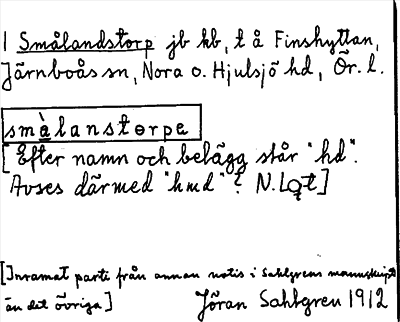 1 Smålandstorp jb kb, t å Finshyttan,
Järnboås sn, Nora o. Hjulsjö hd, Ör. l.
smålanstorpe
[Efter namn och belägg står "hd".
Avses därmed "hmd"? N.Lgt]
[Inramat parti från annan notis i Sahlgrens manuskript
än det övriga] Jöran Sahlgren 1912